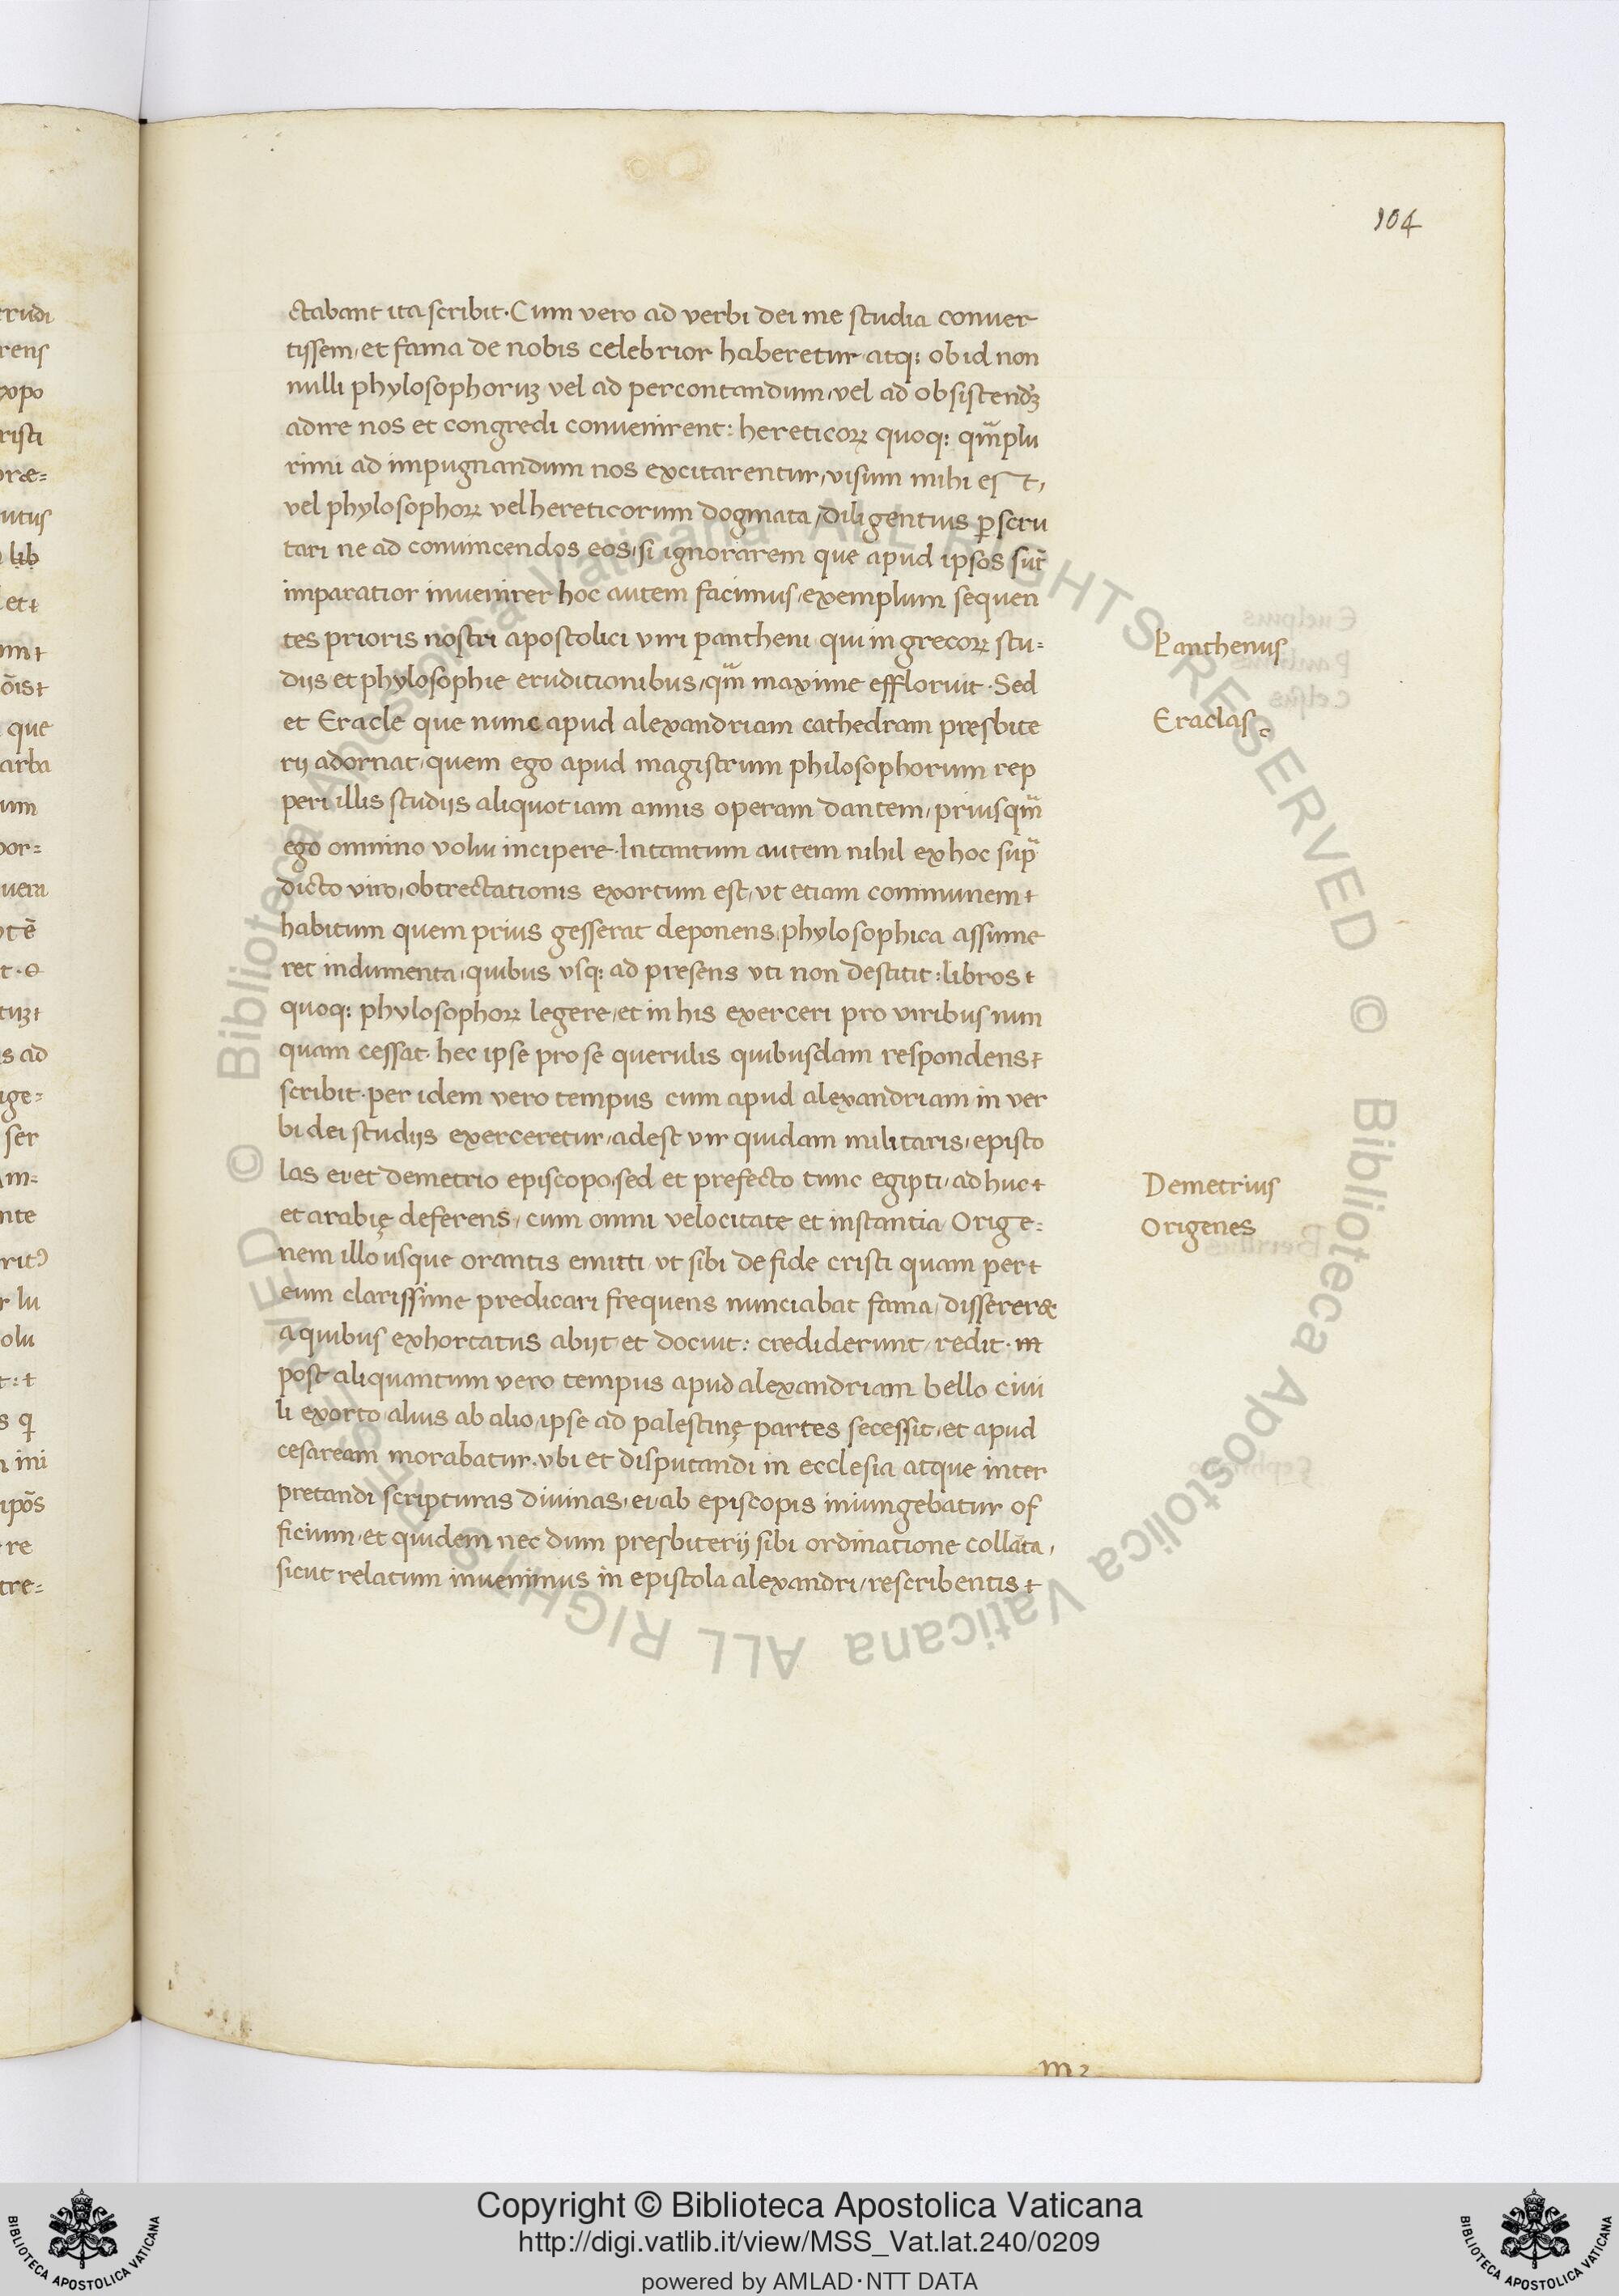 104
ctabant ita scribit. Cum vero ad verbi dei me studia conver
tissem, et fama de nobis celebrior haberetur atq; ob id non
nulli phylosophoruʒ vel ad percontandum, vel ad obsistendʒ
adire nos et congredi convenirent: hereticoꝝ quoq; qm̄plu
rimi ad impugnandum nos excitarentur, visum mihi est,
vel phylosophoꝝ vel hereticorum dogmata, diligentius ꝑscru
tari ne ad convincendos eos, si ignorarem que apud ipsos sūt
imparatior invenirer hoc autem facimus, exemplum sequen
tes prioris nostri apostolici viri pantheni, qui in grecoꝝ stu=
dijs et phylosophie eruditionibus, qm̄ maxime effloruit. Sed
et Eracle que nunc apud alexandriam cathedram presbite
rij adornat, quem ego apud magistrum philosophorum rep
peri illis studijs aliquot iam annis operam dantem, priusqm̄
ego omnino volui incipere. Intantum autem nihil ex hoc sup̄
dicto viro, obtrectationis exortum est, ut etiam communem
habitum quem prius gesserat deponens, phylosophica assume
ret indumenta, quibus usq; ad presens uti non destitit: libros
quoq; phylosophoꝝ legere, et in his exerceri pro viribus nun
quam cessat. hec ipse pro se querulis quibusdam respondens
scribit. per idem vero tempus cum apud alexandriam in ver
bi dei studijs exerceretur, adest vir quidam militaris, episto
las ei et demetrio episcopo, sed et prefecto tunc egipti, adhuc
et arabię deferens, cum omni velocitate et instantia Orige=
nem illo usque orantis emitti ut sibi de fide cristi quam per
eum clarissime predicari frequens nunciabat fama, dissereræ
a quibus exhortatus abijt et docuit: crediderunt, redit. m
post aliquantum vero tempus apud alexandriam bello civi
li exorto, alius ab alio, ipse ad palestinę partes secessit, et apud
cesaream morabatur. ubi et disputandi in ecclesia atque inter
pretandi scripturas divinas, ei ab episcopis iniungebatur of
ficium, et quidem nec dum presbiterij sibi ordinatione collata,
sicut relatum invenimus in epistola alexandri, rescribentis
Panthenus
Eraclas
Demetrius
Origenes
Copyright © Biblioteca Apostolica Vaticana
http://digi.vatlib.it/view/MSS_Vat.lat.240/0209
powered by AMLAD·NTT DATA
BIBLIOTECA APOSTOLICA VATICANA
BIBLIOTECA APOSTOLICA VATICANA
© Biblioteca Apostolica Vaticana ALL RIGHTS RESERVED © Biblioteca Apostolica Vaticana ALL RIGHTS RESERVED